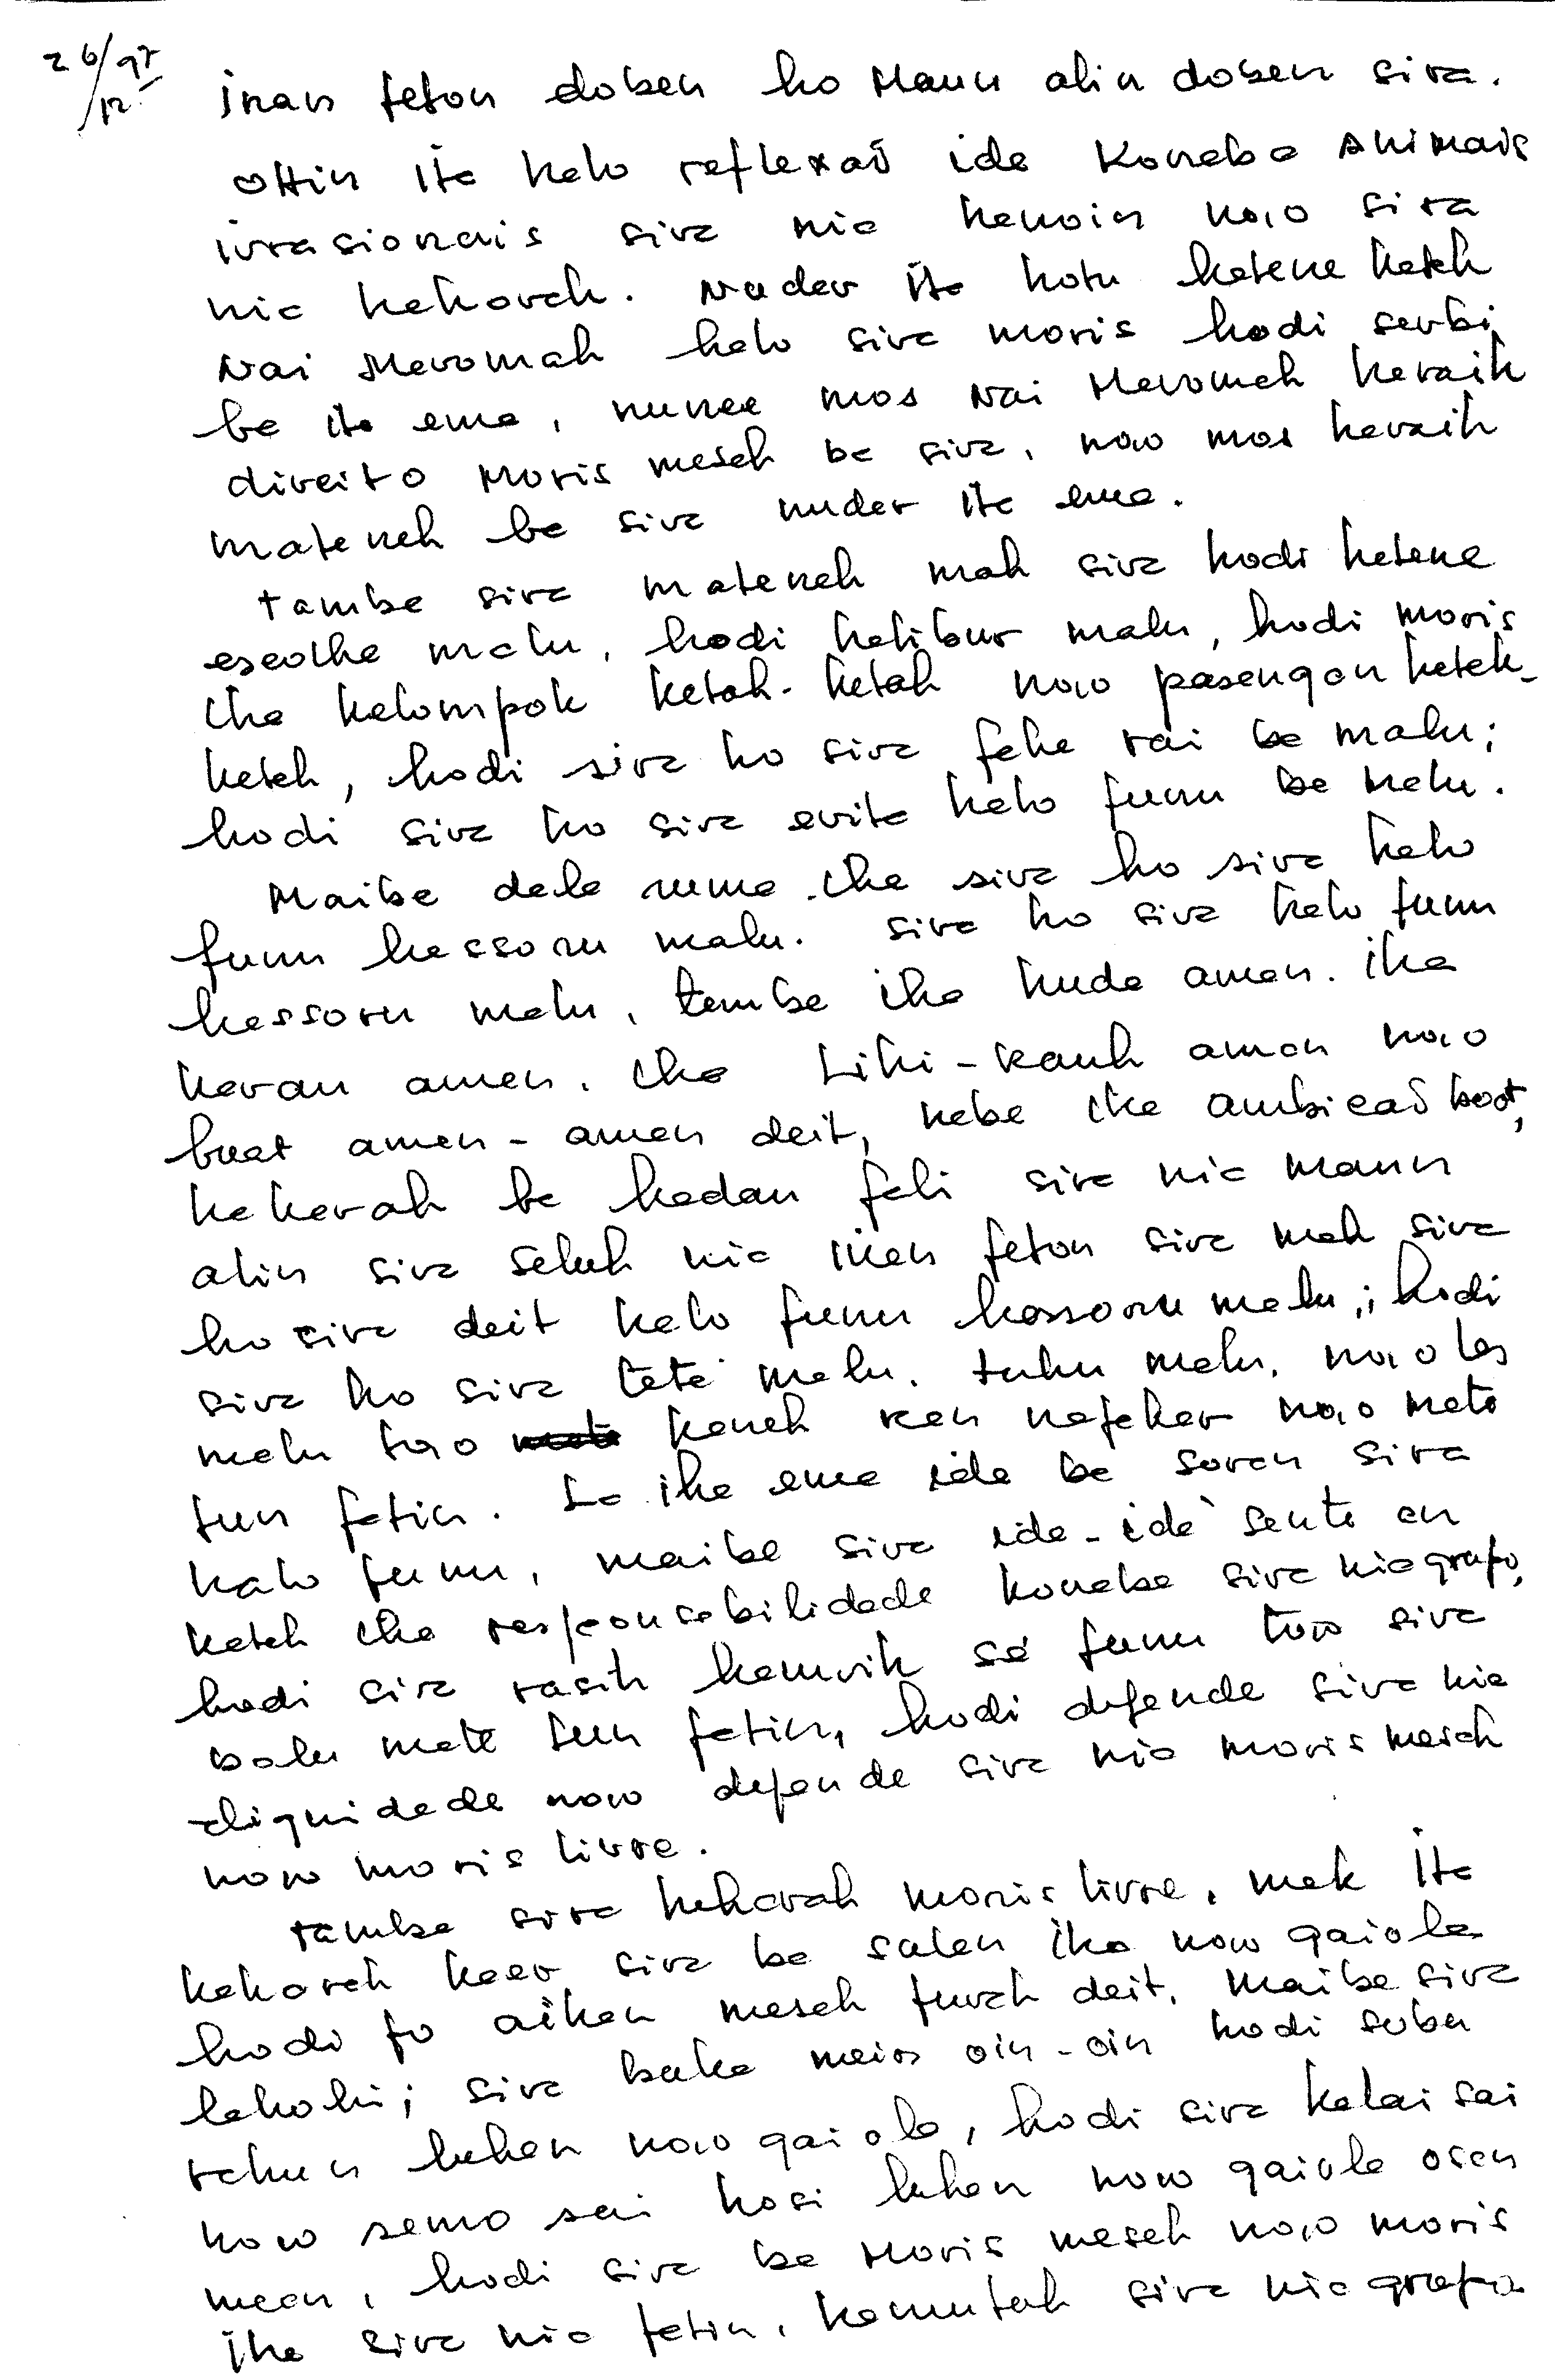 26/12/97
inan feton doben ho Maun alin doben sira.
Ohin ita halo reflexaõ ida Konaba Animais
irrasionais sira nia hanoin nao sira
nia hakarak. Nudar ita hotu hatene katak
Nai Maromak halo sira moris hodi serbi
ba ita ema, nunee mos Nai Maromak haraik
direito Moris mesak ba sira, nao mos haraik
matenek ba sira nudar ita ema.
tamba sira matenek mak sira hodi hatene
escolha malu, hodi halibur malu, hodi moris
iha kelompok ketak-ketak nao pasangan ketak-
ketak, hodi sira ho sira fahe rai ba malu;
hodi sira ho sira evita halo funu ba malu.
Maibe dala ruma iha sira ho sira halo
funu hassoru malu. sira ho sira halo funu
hassoru malu, tamba iha kuda aman. iha
karau aman, iha Liki-rauk aman nao
buat aman-aman deit, nebe iha ambicaõ boot,
hakarak ba hadau fali sira nia maun
alin sira seluk nia inan feton sira mak sira
ho sira deit halo funu hassoru malu; hodi
sira ho sira tata malu, tuku malu, nao las
malu too kanek ran nafakar nao mate
tun fatin. La iha ema ida ba soran sira
halo funu, maibe sira ida-idà senti an
katak iha responsabilidade konaba sira nia grupo,
hodi sira rasik hamrik sé funu too sira
balu mate tun fatin, hodi defende sira nia
dignidade nao defende sira nia moris mesak
nao moris livre.
tamba sira hakarak moris livre, mak ita
hakarak haer sira ba salan iha nao gaiola
hodi fo aihan mesak furak deit, maibe sira
lakohi; sira buka meios oin-oin hodi soba
rahun luhan nao gaiola, hodi sira halai sai
nao semo sai hosi luhan nao gaiola osan
mean, hodi sira ba Moris mesak nao moris
iha sira nia fatin, hamutuk sira nia grupo